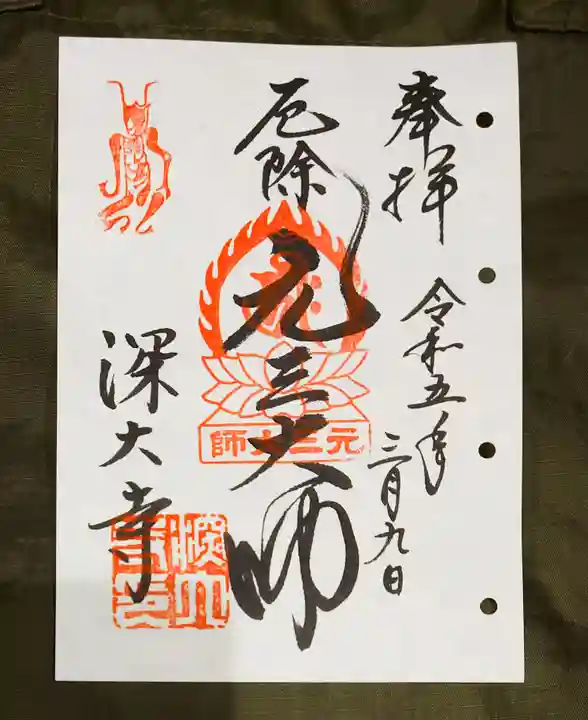 奉拝
令和五年
三月九日
厄除
元三大師
師大三元
深大寺